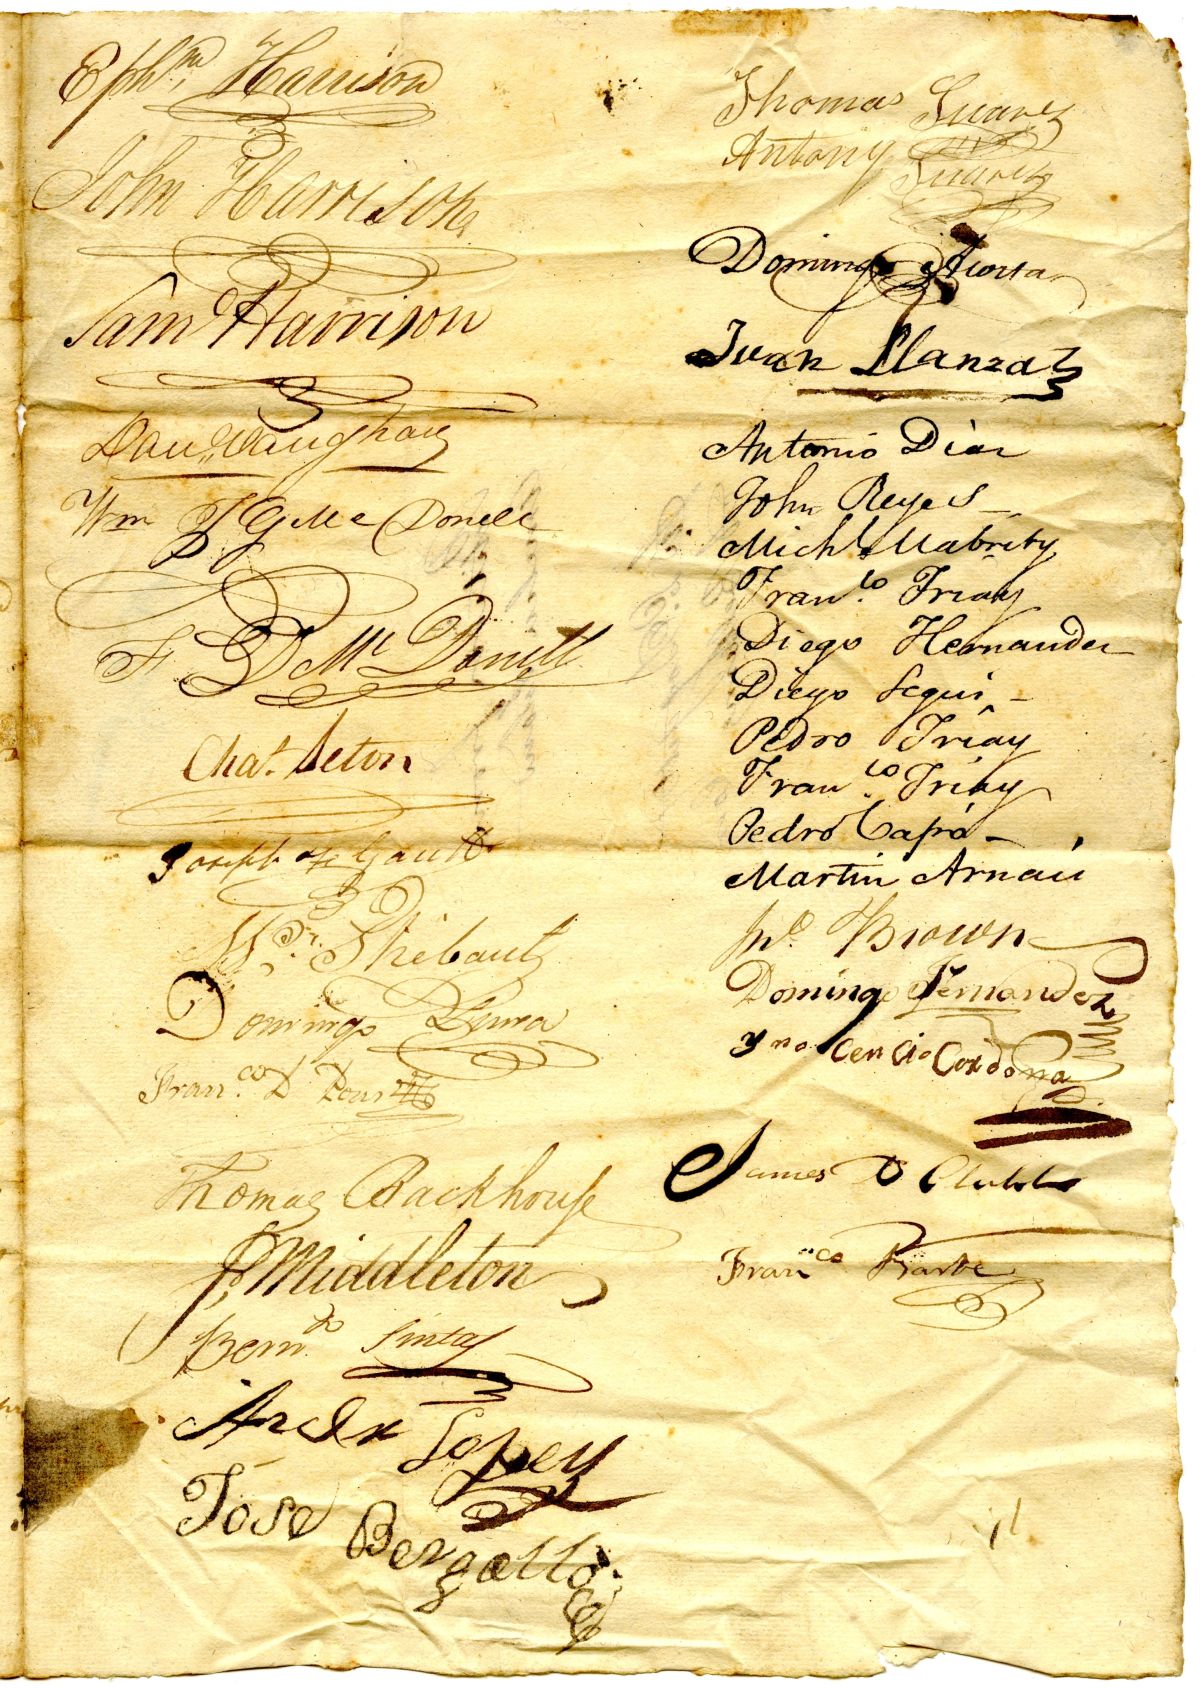 Ephm. Harrison
John Harrison
Sam Harrison
Dan Vaughan
Wm G Mc Donell
F D Mc Donell
Chas. Seton
Joseph
Thibault
Domingo
Franco. D
Thomas Backhouse
Middleton
Berndo Sintas
Andrs Lopez
Jose Bergallo
Thomas Suarez
Antony Suarez
Domingo Acosta
Juan Llanzat
Antonio Diaz
John Reyes
Michl. Mabrity
Franco. Triay
Diego Hernandez
Diego Segui
Pedro Triay
Franco. Triay
Pedro Capó
Martin Arnau
Jno. Brown
Domingo Fernandez
Ynocencio Cordona
James D Clubb
Franco Barbe